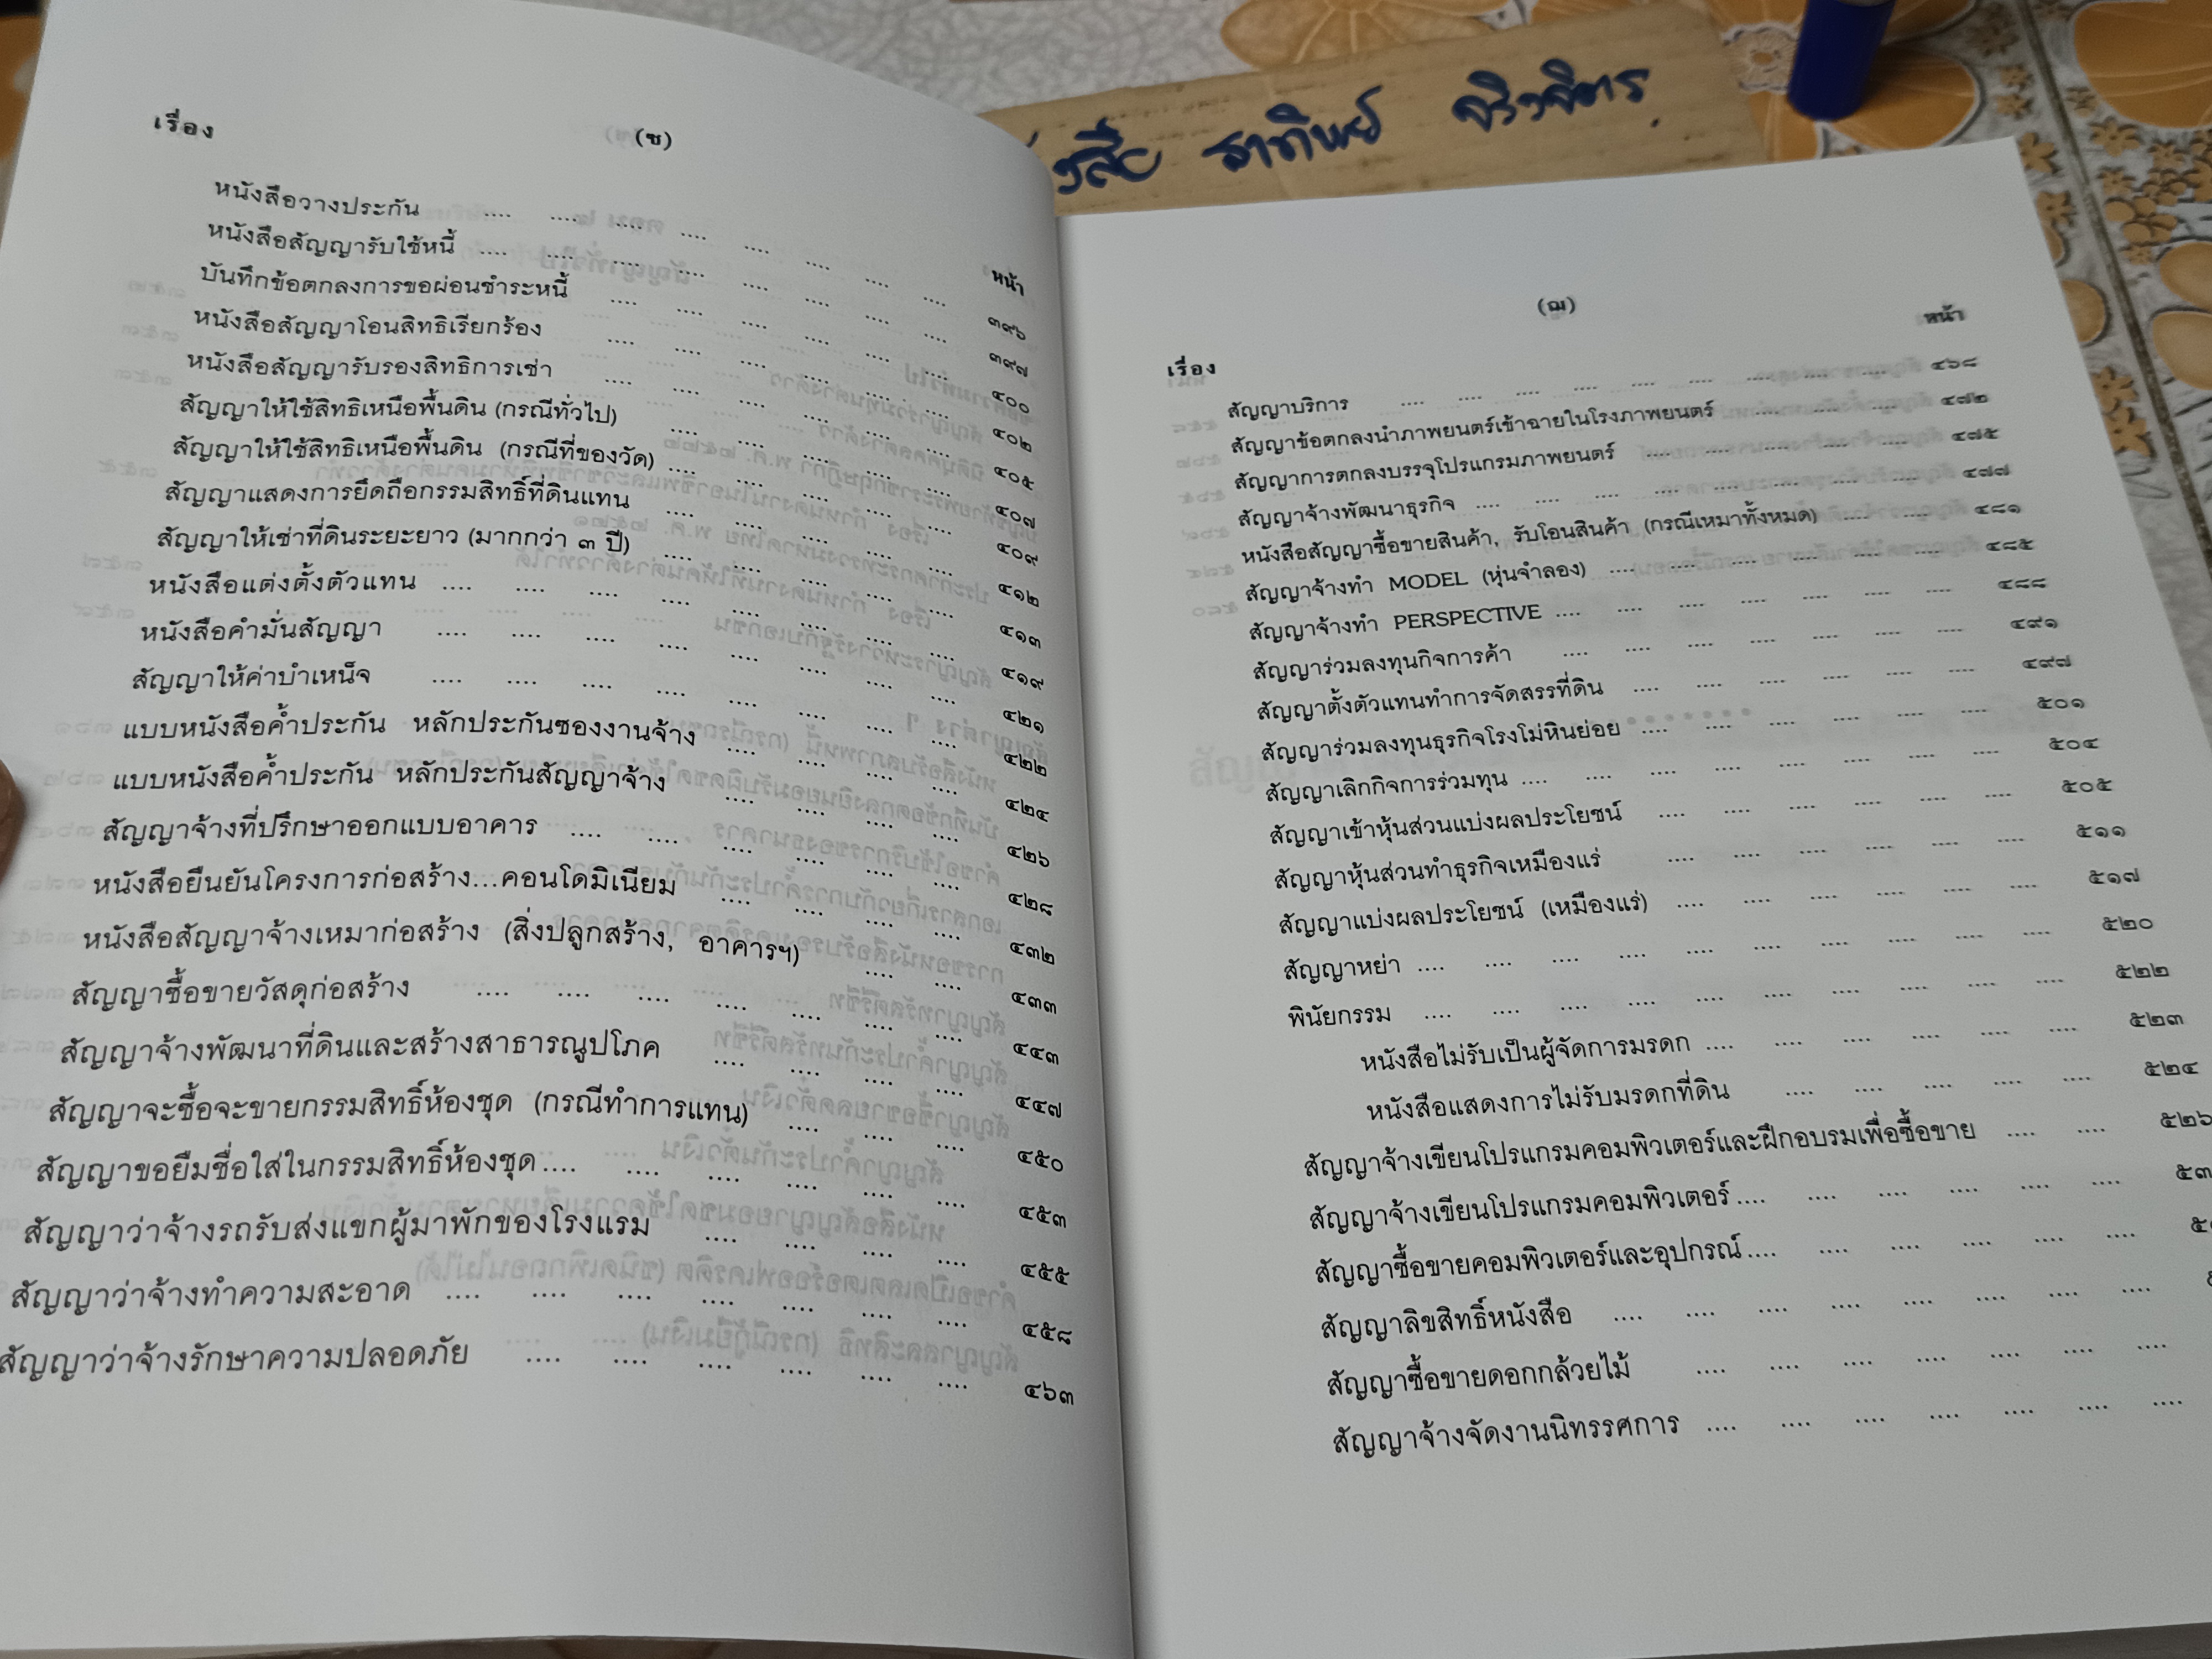 เรื่อง (ซ) หน้า
หนังสือวางประกัน .... .... .... .... .... .... .... .... ๓๙๖
หนังสือสัญญารับใช้หนี้ .... .... .... .... .... .... .... .... ๓๙๗
บันทึกข้อตกลงการขอผ่อนชำระหนี้ .... .... .... .... .... .... ๔๐๐
หนังสือสัญญาโอนสิทธิเรียกร้อง .... .... .... .... .... .... ๔๐๒
หนังสือสัญญารับรองสิทธิการเช่า .... .... .... .... .... .... ๔๐๕
สัญญาให้ใช้สิทธิเหนือพื้นดิน (กรณีทั่วไป) .... .... .... .... .... ๔๐๗
สัญญาให้ใช้สิทธิเหนือพื้นดิน (กรณีที่ของวัด) .... .... .... .... .... ๔๐๙
สัญญาแสดงการยึดถือกรรมสิทธิ์ที่ดินแทน .... .... .... .... .... ๔๑๒
สัญญาให้เช่าที่ดินระยะยาว (มากกว่า ๓ ปี) .... .... .... .... .... ๔๑๓
หนังสือแต่งตั้งตัวแทน .... .... .... .... .... .... .... .... ๔๑๙
หนังสือคำมั่นสัญญา .... .... .... .... .... .... .... .... ๔๒๑
สัญญาให้ค่าบำเหน็จ .... .... .... .... .... .... .... .... ๔๒๒
แบบหนังสือค้ำประกัน หลักประกันซองงานจ้าง .... .... .... .... ๔๒๔
แบบหนังสือค้ำประกัน หลักประกันสัญญาจ้าง .... .... .... .... ๔๒๖
สัญญาจ้างที่ปรึกษาออกแบบอาคาร .... .... .... .... .... .... ๔๒๘
หนังสือยืนยันโครงการก่อสร้าง...คอนโดมิเนียม .... .... .... .... ๔๓๒
หนังสือสัญญาจ้างเหมาก่อสร้าง (สิ่งปลูกสร้าง, อาคารฯ) .... .... ๔๓๓
สัญญาซื้อขายวัสดุก่อสร้าง .... .... .... .... .... .... .... ๔๔๓
สัญญาจ้างพัฒนาที่ดินและสร้างสาธารณูปโภค .... .... .... .... ๔๔๗
สัญญาจะซื้อจะขายกรรมสิทธิ์ห้องชุด (กรณีทำการแทน) .... .... .... ๔๕๐
สัญญาขอยืมชื่อใส่ในกรรมสิทธิ์ห้องชุด .... .... .... .... .... .... ๔๕๓
สัญญาว่าจ้างรถรับส่งแขกผู้มาพักของโรงแรม .... .... .... .... ๔๕๕
สัญญาว่าจ้างทำความสะอาด .... .... .... .... .... .... .... ๔๕๘
สัญญาว่าจ้างรักษาความปลอดภัย .... .... .... .... .... .... ๔๖๓
(ฌ)
เรื่อง หน้า
สัญญาบริการ .... .... .... .... .... .... .... .... .... ๔๖๘
สัญญาข้อตกลงนำภาพยนตร์เข้าฉายในโรงภาพยนตร์ .... .... .... ๔๗๒
สัญญาการตกลงบรรจุโปรแกรมภาพยนตร์ .... .... .... .... .... ๔๗๕
สัญญาจ้างพัฒนาธุรกิจ .... .... .... .... .... .... .... .... ๔๗๗
หนังสือสัญญาซื้อขายสินค้า, รับโอนสินค้า (กรณีเหมาทั้งหมด) .... .... ๔๘๑
สัญญาจ้างทำ MODEL (หุ่นจำลอง) .... .... .... .... .... .... ๔๘๕
สัญญาจ้างทำ PERSPECTIVE .... .... .... .... .... .... .... ๔๘๘
สัญญาร่วมลงทุนกิจการค้า .... .... .... .... .... .... .... ๔๙๑
สัญญาตั้งตัวแทนทำการจัดสรรที่ดิน .... .... .... .... .... .... ๔๙๗
สัญญาร่วมลงทุนธุรกิจโรงโม่หินย่อย .... .... .... .... .... .... ๕๐๑
สัญญาเลิกกิจการร่วมทุน .... .... .... .... .... .... .... .... ๕๐๔
สัญญาเข้าหุ้นส่วนแบ่งผลประโยชน์ .... .... .... .... .... .... ๕๐๕
สัญญาหุ้นส่วนทำธุรกิจเหมืองแร่ .... .... .... .... .... .... ๕๑๑
สัญญาแบ่งผลประโยชน์ (เหมืองแร่) .... .... .... .... .... .... ๕๑๗
สัญญาหย่า .... .... .... .... .... .... .... .... .... .... ๕๒๐
พินัยกรรม .... .... .... .... .... .... .... .... .... .... ๕๒๒
หนังสือไม่รับเป็นผู้จัดการมรดก .... .... .... .... .... .... ๕๒๓
หนังสือแสดงการไม่รับมรดกที่ดิน .... .... .... .... .... ๕๒๔
สัญญาจ้างเขียนโปรแกรมคอมพิวเตอร์และฝึกอบรมเพื่อซื้อขาย .... .... ๕๒๖
สัญญาจ้างเขียนโปรแกรมคอมพิวเตอร์ .... .... .... .... .... ....
สัญญาซื้อขายคอมพิวเตอร์และอุปกรณ์ .... .... .... .... .... ....
สัญญาลิขสิทธิ์หนังสือ .... .... .... .... .... .... .... ....
สัญญาซื้อขายดอกกล้วยไม้ .... .... .... .... .... .... ....
สัญญาจ้างจัดงานนิทรรศการ .... .... .... .... .... .... ....